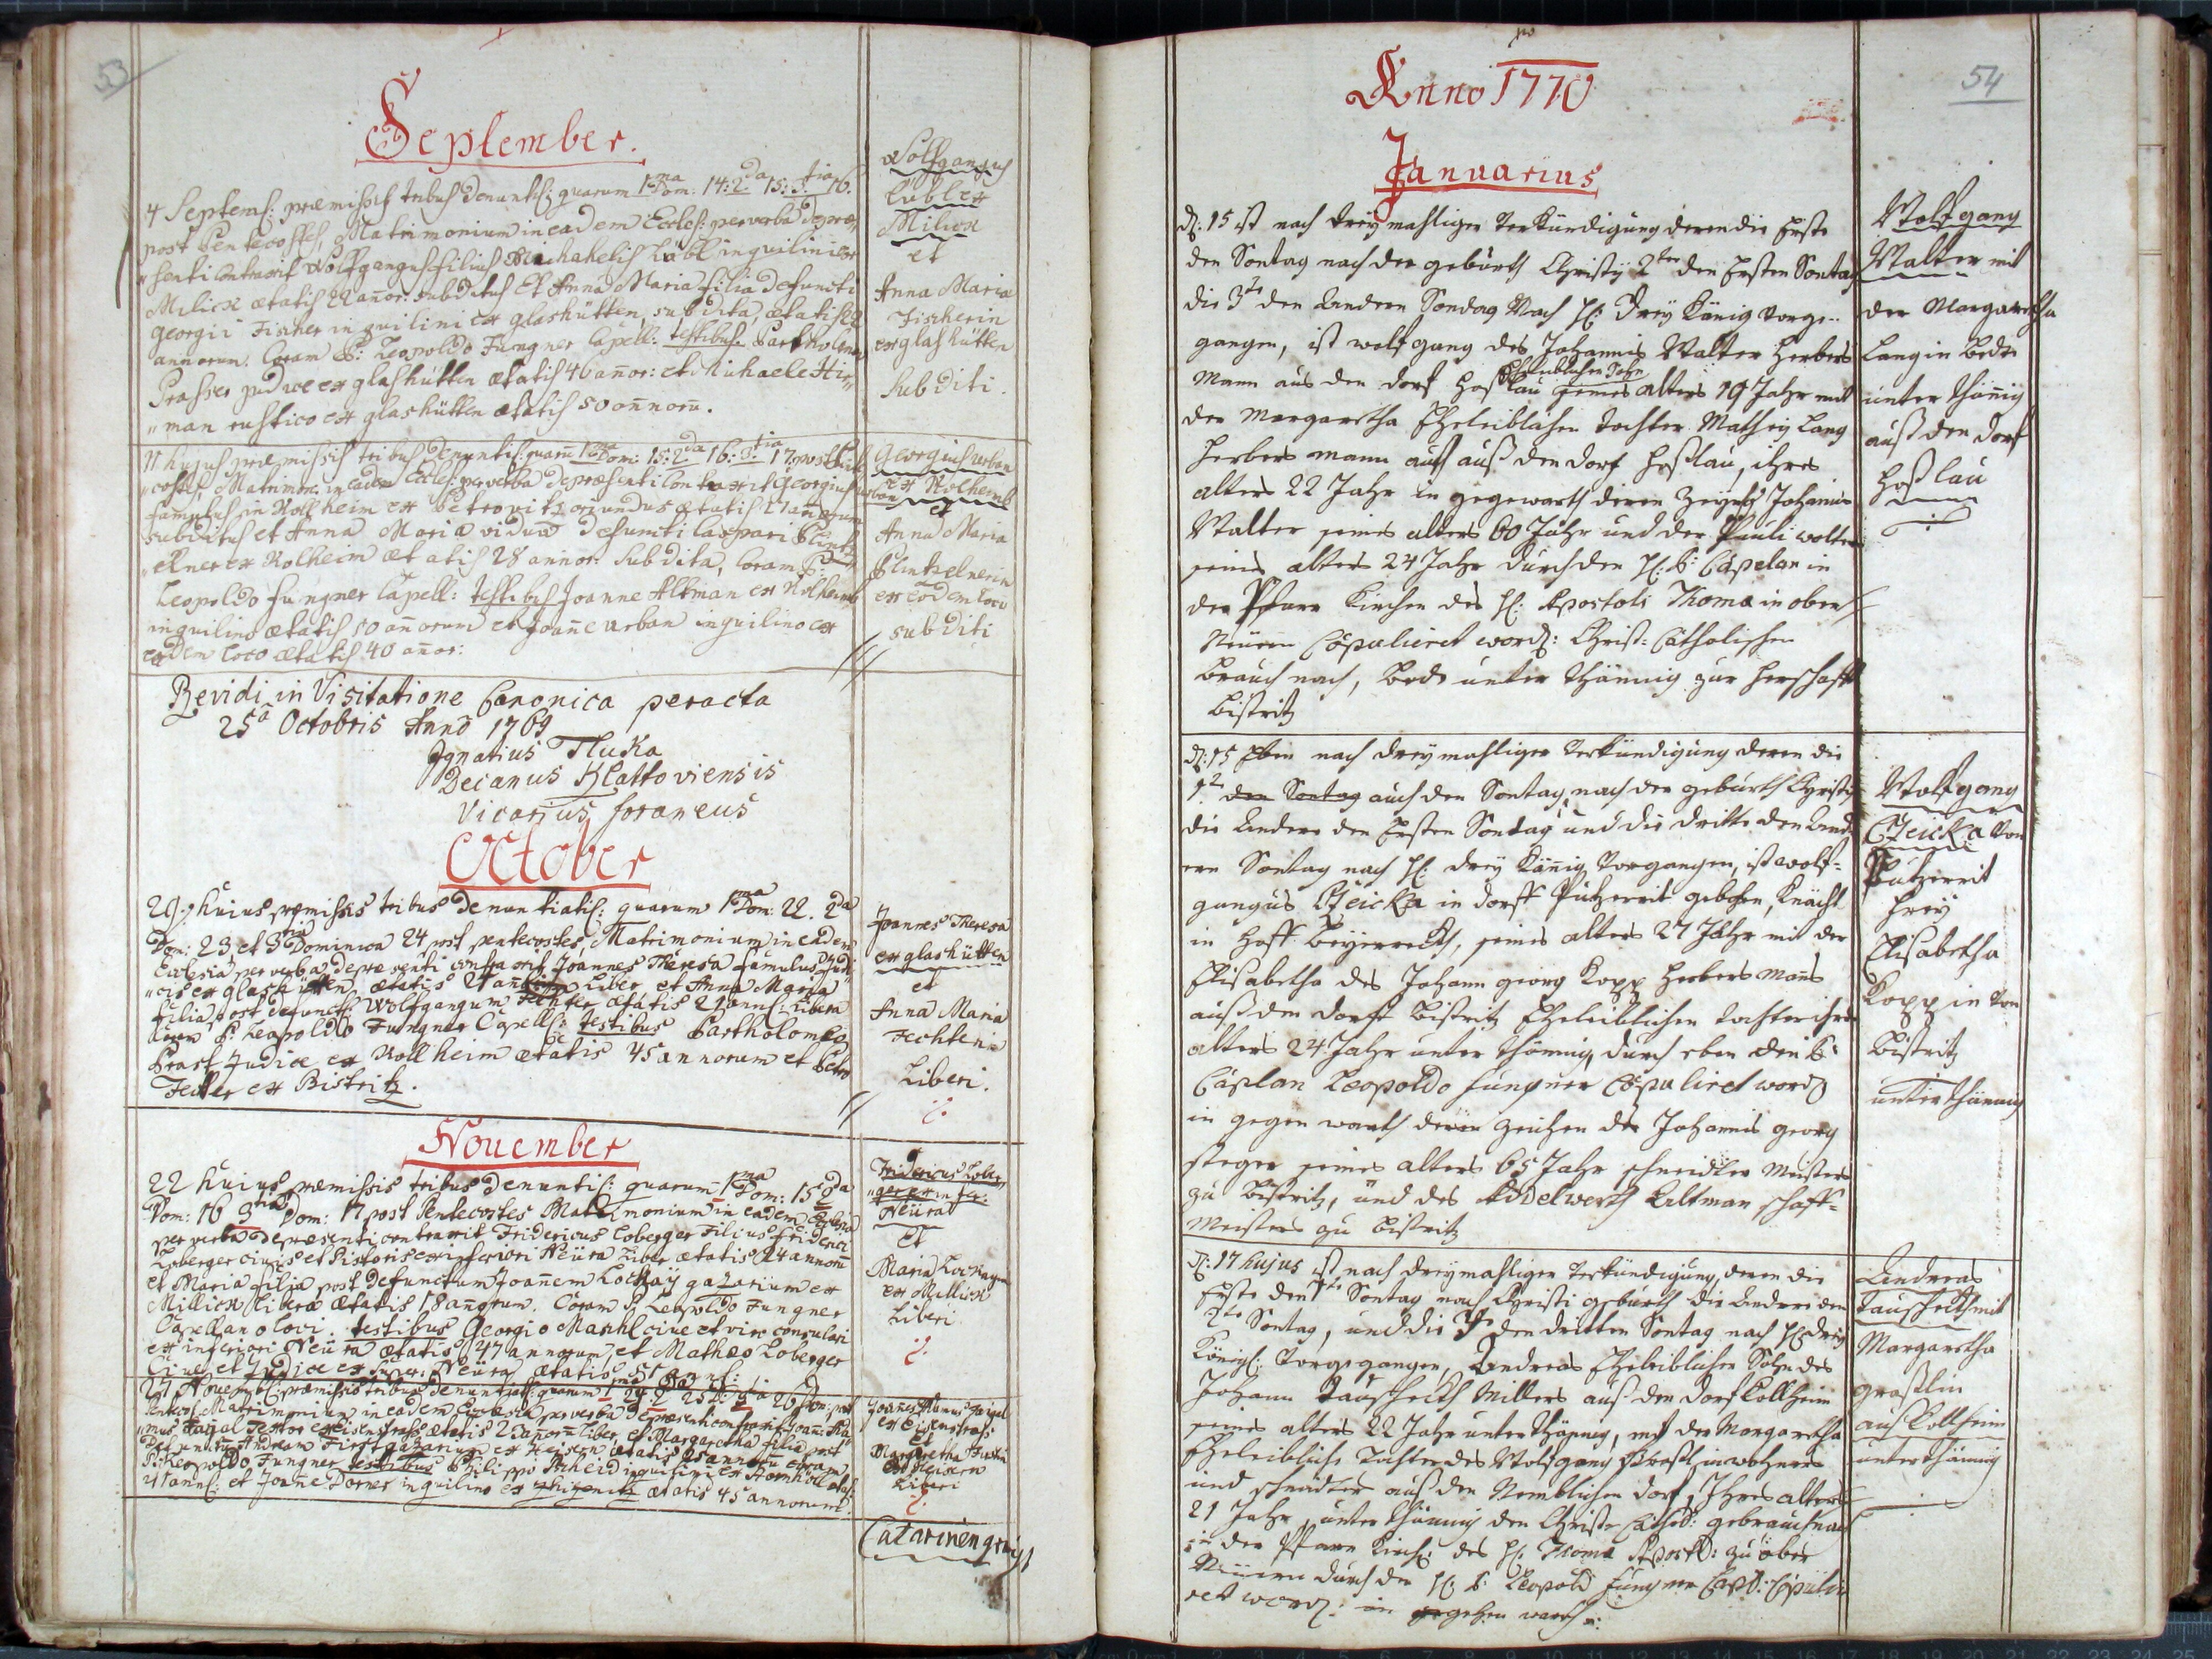 53
September.
4 Septemb: præmissis tribus Denuntis: quarum 1ma Dom: 14: 2da 15: 3tia 16.
post Pentecostes, Matrimonium in eadem Eccles: per verba de præ„
„senti Contraxit Wolfgangus filius Michahelis Lübl inquilini ex
Milick ætatis 22 añor: subditus Et Anna Maria filia defuncti
Georgii Fischer inquilini ex glashütten, subdita, ætatis 22
annorum. Coram P: Leopoldo Fungner Capell: testibus Bartholomeo
Prasser judice ex glashütten ætatis 46 añor: et Michaele Hir„
„man rustico ex glashütten ætatis 50 añnorũ.
Wolfgangus
Lübl ex
Milick
et
Anna Maria
Fischerin
ex glashütten
Subditi.
11 hujus præmissis tribus Denuntis: quarũ 1ma Dom: 15: 2da 16: 3tia 17: post Pente
„costes, Matrimon: in eadem Eccles: per verba de præsenti Contraxit Georgius urban
famulus in Rollheim ex Petrovitz oriundus ætatis 21 añorum
subditus et Anna Maria vidua defuncti Caspari Plintz
„elner ex Rolheim ætatis 28 annor: Subdita, Coram P:
Leopoldo Fungner Capell: testibus Joanne Altman ex Rolheimb
inquilino ætatis 50 añorum et Joañe urban inquilino ex
eodem loco ætatis 40 añor:
Georgius urban
ex Rolheimb
et
Anna Maria
Plintzelnerin
ex eodem loco
subditi
Revidi in Visitatione Canonica peracta
25ta Octobris Anno 1769
Ignatius Tluka
Decanus Klattoviensis
Vicarius foraneus
October
29 huius præmissis tribus Denuntiatis: quarum 1ma Dom: 22. 2da
Dom: 23 et 3tia Dominica 24 post pentecostes, Matrimonium in eadem
Ecclesia per verba de præsenti contraxit Joannes Theresa famulus Judi
„cis ex glashütten ætatis 21 annorum Liber, et Anna Maria
filia post defunct: Wolfgangum Fechter ætatis 21 ann: Libera
Coram P. Leopoldo Fungner Capell: testibus Bartholomeo
Prast Judice ex Rollheim ætatis 45 annorum et Petro
Feder ex Bistritz.
Joannes Theresa
ex glashütten
et
Anna Maria
Fechten
Liberi.
November
22 huius præmissis tribus Denuntis: quarum 1ma Dom: 15 2da
Dom: 16 3tia Dom: 17 post Pentecostes Matrimonium in eadem Ecclesia
per verba de præsenti contraxit Fridericus Loberger Filius Friderici
Loberger civis et Pistoris ex inferiori Neüra Liber ætatis 24 annorũ
et Maria filia post defunctum Joañem Lockaÿ gazarium ex
Millick Libera ætatis 18 añorum. Coram P. Leopoldo Fungner
Capellano loci. testibus Georgio Manhl cive et viro consulari
ex inferiori Neüra ætatis 47 annorum, et Mathæo Loberger
Cive et Judice ex super: Neüra ætatis 55 ann:
Fridericus Lober
„ger ex infer:
Neüra
Et
Maria Lockayin
ex Millick
Liberi
27 Novembr: præmissis tribus denuntiat: quarum 1ma 24 2da 25 3tia 26 Dom: post
Pentecos: Matrimonium in eadem Ecclesia per verba de præsenti contraxit Joañ: Tho
ex Eisenstrass ætatis 2 añorũ liber, et Margaretha filia post
Defunctũ Andream First gazarium ex Heisern ætatis 25 annorũ coram
P. Leopoldo Fungner testibus Philippo Scheid inquilini ex
41 ann: et Joañe Dorner inquilino ex ætatis 45 annorum
ex Eisenstrass
Et
Margaretha Firstin
ex Heisern
Liberi
Catarinengericht
54
Anno 1770
Januarius
d: 15 ist nach dreÿmahliger Verkündigung deren die Erste
den Sontag nach der geburth Christÿ 2ten den Ersten Sontag
die 3te den Andern Sondag Nach hl: dreÿ König vorge„
gangen, ist wolfgang des Johannis Walter Herbers
Mann aus den dorf Hoßlau Eheleiblicher Sohn seines alters 19 Jahr mit
der Margaretha Eheleiblichen tochter Mathej Lang
Herbers mann auch auß den dorf Hoßlau, ihres
alters 22 Jahr in gegewarth deren Zeügen Johannis
Walter seines alters 60 Jahr und der Pauli wolter
seines alters 24 Jahr durch den H: P: Capelan in
der Pfarr Kirchen des hl: Apostoli Thoma in ober
Neüern Copulieret word: Christ: Catholischen
brauch nach, Bede unter thännig zur Herschafft
Bistritz
Wolfgang
Walter mit
der Margaretha
Langin Bede
unter thänig
auß den dorf
Hoßlau
d: 15 Eben nach dreÿmahliger Verkündigung deren die
1te den Sontag auch den Sontag nach der geburth Christÿ
die Andere den Ersten Sondag und die dritte den And
ern Sontag nach hl: dreÿ König Vorgangen, ist wolf-
gangus Czeicka in dorff Putzerrit gebohrn, Knächt
in Hoff Beÿerreckh, seines alters 27 Jahr mit der
Elisabetha des Johann georg Kopp Herbers Mans
auß dem dorff Bistritz Eheleiblichen tochter ihres
alters 24 Jahr unter thännig, durch eben den P:
Caplan Leopoldo Fungner Copuliret word:
in gegen warth deren zeichen des Johannis georg
steger seines alters 65 Jahr schneider Meisters
zu Bistritz, und des Adelwerth Altman schaff-
Meisters zu Bistritz
Wolfgang
Czeicka von
Putzerrit
freÿ
Elisabetha
Kopp in von
Bistritz
unterthännig
d: 17 hujus ist nach dreÿmahliger Verkündigung, deren die
Erste den 1te Sontag nach Christi geburth die Andere den
2te Sontag, und die 3te den dritten Sontag nach hl: dreÿ
König: Vorgegangen, Andreas Eheleiblicher Sohn des
Johann Tauschekh Millers auß den dorf Kollheim
seines alters 22 Jahr unter thännig, mit der Margaretha
Eheleibliche Tochter des Wolfgang inwohners
und auß den Nemblichen dorf, Ihres alters
21 Jahr, unter thännig den Christ- Cathol: gebrauch nach
in der Pfarr Kirch: des hl: Thoma Apost: zu ober
Neüern durch den H: P: Leopold Fungner Capl: Copuli
ret word: in gegehen warth:
Andreas
Tauschekh mit
Margaretha
graßlin
auß Kollheim
unterthännig